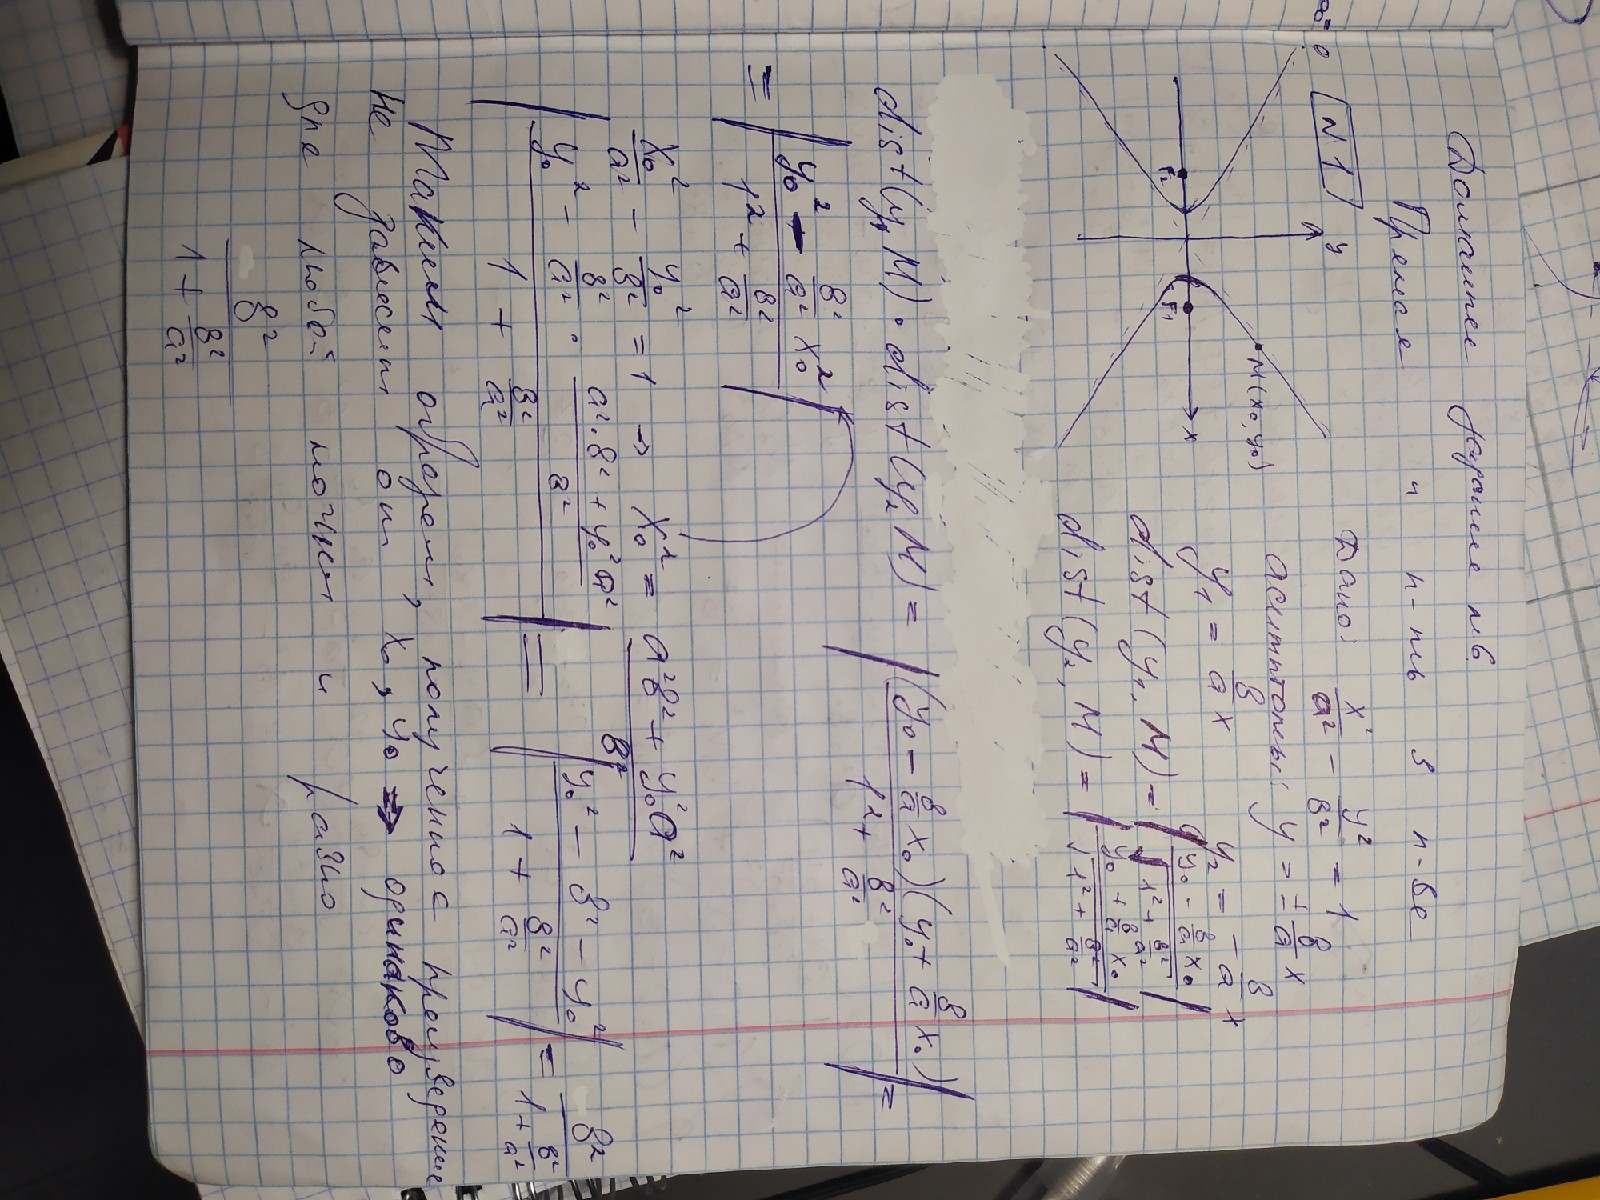 Домашнее задание №6
Прямая и п-ть в п-ве
№1
y
x
M(x₀, y₀)
F₂ F₁
Дано: x²/a² - y²/в² = 1
асимптоты: y = ± в/a x
y₁ = в/a x y₂ = - в/a x
dist(y₁, M) = |(y₀ - в/a x₀)/√(1² + в²/a²)|
dist(y₂, M) = |(y₀ + в/a x₀)/√(1² + в²/a²)|
dist(y₁ M) · dist(y₂ M) = |(y₀ - в/a x₀)(y₀ + в/a x₀)/(1² + в²/a²)| =
= |(y₀² - в²/a² x₀²)/(1² + в²/a²)|
x₀²/a² - y₀²/в² = 1 → x₀² = (a²в² + y₀²a²)/в²
|(y₀² - в²/a² · (a²·в² + y₀²a²)/в²)/(1 + в²/a²)| = |(y₀² - в² - y₀²)/(1 + в²/a²)| = в²/(1 + в²/a²)
Таким образом, полученное произведение
не зависит от x₀, y₀ ⇒ одинаково
для любой точки и равно
в²/(1 + в²/a²)